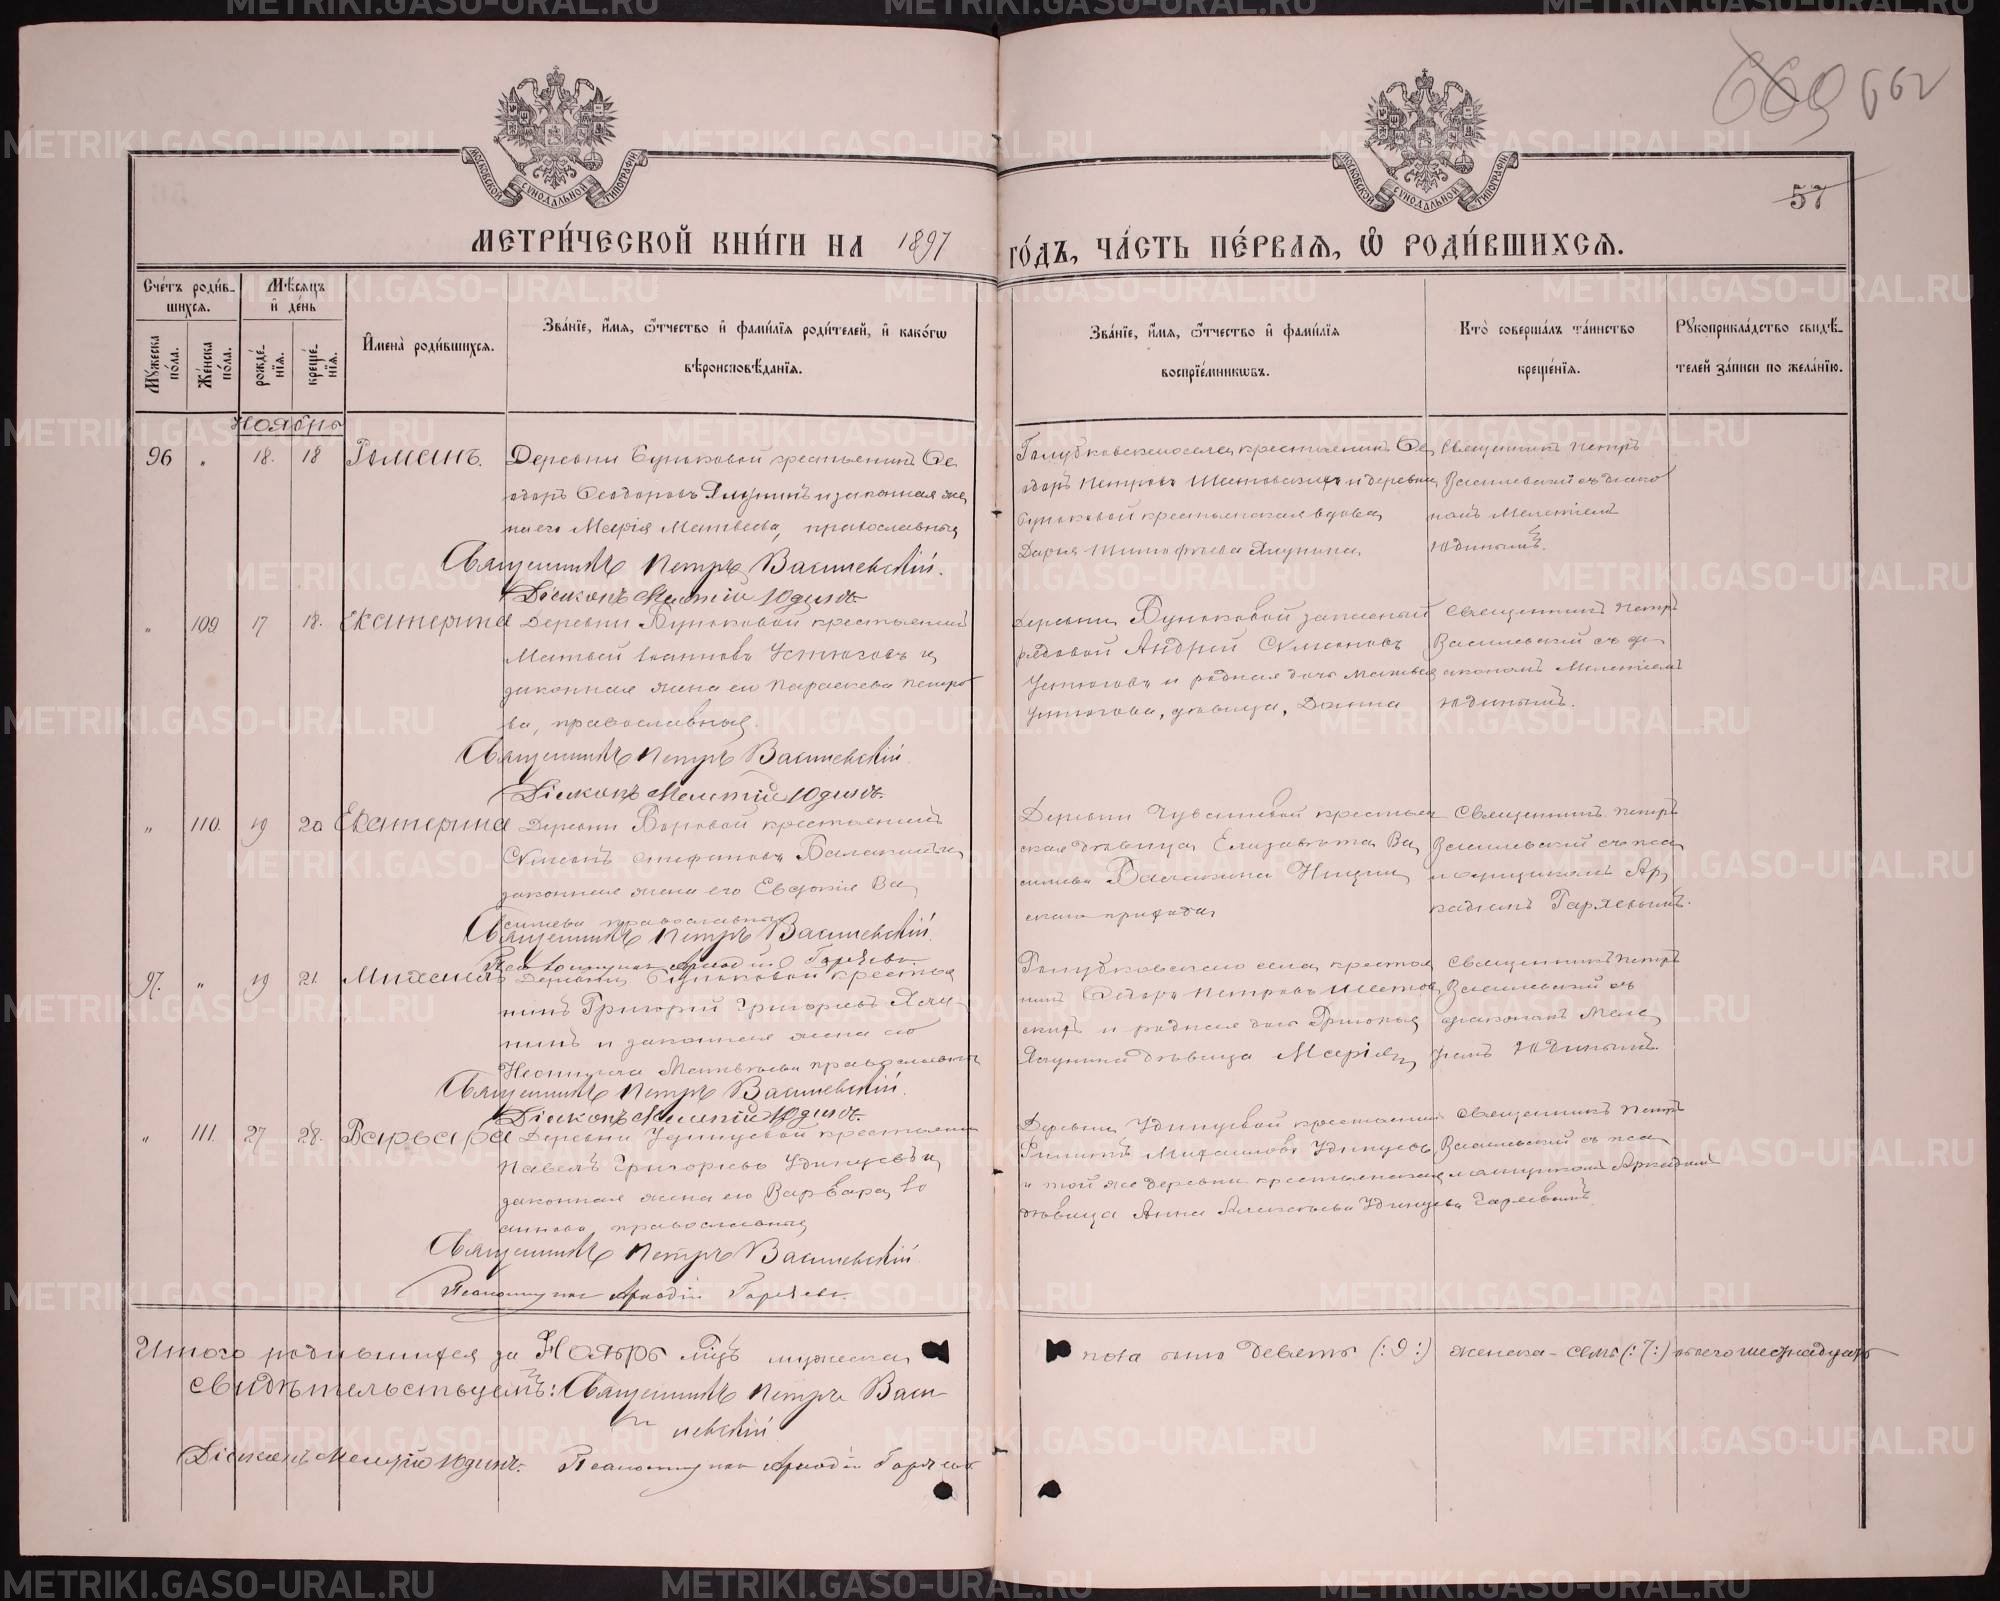 662
57
МОСКОВСКОЙ СУНОДАЛЬНОЙ ТИПОГРАФІИ
МОСКОВСКОЙ СУНОДАЛЬНОЙ ТИПОГРАФІИ
МЕТРИ́ЧЕСКОЙ КНИ́ГИ НА 1897 ГО́ДЪ, ЧА́СТЬ ПЕ́РВАЯ, Ѡ РОДИ́ВШИХСЯ.
Сче́тъ роди́вшихся.
Мꙋ́жеска по́ла.
Же́нска по́ла.
Мѣ́сяцъ и де́нь
рожде́нїя.
креще́нїя.
Имена̀ роди́вшихся.
Зва́нїе, и́мя, ѻ҆́тчество и фами́лїя роди́телей, и како́гѡ
вѣроисповѣ́данїя.
Зва́нїе, и́мя, ѻ҆́тчество и фами́лїя
воспрїе́мникѡвъ.
Кто̀ соверша́лъ та́инство
креще́нїя.
Рꙋкоприкла́дство свидѣ́-
телей за́писи по жела́нїю.
Ноябрь
96 " 18. 18 Романъ.
Деревни Буньковой крестьянинъ Ѳе
одоръ Ѳеодоровъ Ялунинъ и законная же
на его Марія Матвеева, православныя
Священникъ Петръ Василевскій.
Діаконъ Мелетій Юдинъ.
Голубковскаго села крестьянинъ Ѳе
одоръ Петровъ и деревни
Буньковой крестьянская вдова
Дарья Тимофѣева Ялунина
Священникъ Петръ
Василевскій съ діако
номъ Мелетіемъ
Юдинымъ.
" 109 17 18. Екатерина
Деревни Буньковой крестьянинъ
Матвей Іоанновъ Устюговъ и
законная жена его Параскева Петро
ва, православныя.
Священникъ Петръ Василевскій.
Діаконъ Мелетій Юдинъ.
Деревни Буньковой запасный
рядовой Андрей Симеоновъ
Устюговъ и родная дочь Матвея
Устюгова, дѣвица, Домна
Священникъ Петръ
Василевскій съ ді
акономъ Мелетіемъ
Юдинымъ.
" 110. 19 20 Екатерина
Деревни Боровой крестьянинъ
Симеонъ Стефановъ Балакинъ и
законная жена его Евдокія Ва
сильева православныя
Священникъ Петръ Василевскій.
Псаломщикъ Аркадій Гаряевъ.
Деревни крестьян
ская дѣвица Елизавета Ва
сильева Балакина Ницин
скаго прихода
Священникъ Петръ
Василевскій съ пса
ломщикомъ Ар
кадіемъ Гаряевымъ.
97. " 19 21. Михаилъ
Деревни Буньковой крестья
нинъ Григорій Григорьевъ Ялу
нинъ и законная жена его
Неонилла Матвѣева православныя
Священникъ Петръ Василевскій.
Діаконъ Мелетій Юдинъ.
Голубковскаго села крестья
нинъ Ѳедоръ Петровъ
и родная дочь Григорья
Ялунина дѣвица Марія
Священникъ Петръ
Василевскій съ
діакономъ Меле
тіемъ Юдинымъ.
" 111. 27 28. Варвара
Деревни Удинцевой крестьянинъ
Павелъ Григорьевъ Удинцевъ и
законная жена его Варвара Іо
аннова православныя
Священникъ Петръ Василевскій
Псаломщикъ Аркадій Гаряевъ.
Деревни Удинцевой крестьянинъ
Филиппъ Михаиловъ Удинцевъ
и той же деревни крестьянская
дѣвица Анна Алексѣева Удинцева
Священникъ Петръ
Василевскій съ пса
ломщикомъ Аркадіемъ
Гаряевымъ.
Итого родившихся за Ноябрь мцъ мужеска пола было девять (:9:) женска - семь (:7:) обоего шестнадцать
свидѣтельствуемъ: Священникъ Петръ Васи
левскій
Діаконъ Мелетій Юдинъ. Псаломщикъ Аркадій Гаряевъ
METRIKI.GASO-URAL.RU